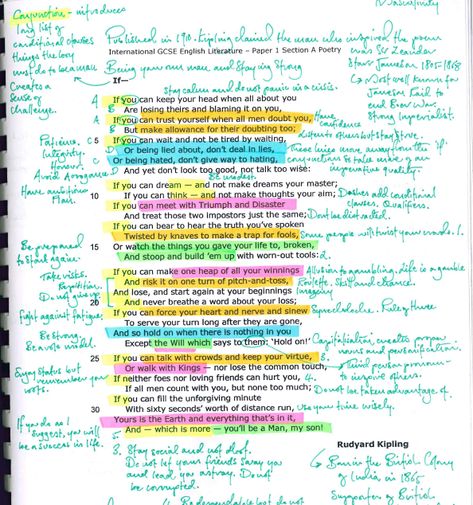 Masculinity
Conjunction - introduces
long list of
conditional clauses
things the boy
must do to be a man
Creates a
sense of
challenge.
Published in 1910. Kipling claimed the man who inspired the poem
was Sir Leander
Starr Jameson
Most well known for
Jameson Raid to
end Boer War
Strong Imperialist.
International GCSE English Literature – Paper 1 Section A Poetry
Being your own man and staying strong
If—
stay calm and do not panic in a crisis.
If you can keep your head when all about you
Are losing theirs and blaming it on you,
If you can trust yourself when all men doubt you,
But make allowance for their doubting too;
Have
confidence
Listen to others but stay strong
5 If you can wait and not be tired by waiting,
Or being lied about, don't deal in lies,
Or being hated, don't give way to hating,
And yet don't look too good, nor talk too wise:
Patience.
Integrity
Honour.
Avoid Arrogance
Have ambition
Plan.
Be modest
If you can dream — and not make dreams your master;
10 If you can think — and not make thoughts your aim;
If you can meet with Triumph and Disaster
And treat those two impostors just the same;
Dashes add conditional
clauses. Qualifiers.
Don't be distracted.
If you can bear to hear the truth you've spoken
Twisted by knaves to make a trap for fools,
Some people will twist your words. 1.
15 Or watch the things you gave your life to, broken,
And stoop and build 'em up with worn-out tools:
2.
Be prepared
to start again.
Take risks.
Repetition.
Do not give up
If you can make one heap of all your winnings
And risk it on one turn of pitch-and-toss,
And lose, and start again at your beginnings
20 And never breathe a word about your loss;
Allusion to gambling. Life is a gamble
Roulette. Skill and chance.
Imagery
If you can force your heart and nerve and sinew
To serve your turn long after they are gone,
And so hold on when there is nothing in you
Except the Will which says to them: 'Hold on!'
Fight against fatigue
Be strong
Be a role model.
Rule of three
Capitalisation, creates proper
noun and personification.
25 If you can talk with crowds and keep your virtue,
Or walk with Kings — nor lose the common touch,
If neither foes nor loving friends can hurt you,
If all men count with you, but none too much;
3.
4.
Enjoy status but
remember your
roots.
Third person pronoun
Do not be taken advantage of.
If you can fill the unforgiving minute
30 With sixty seconds' worth of distance run,
Yours is the Earth and everything that's in it,
And — which is more — you'll be a Man, my son!
Use your time wisely.
If you do as I
suggest, you will
be a success in life.
Rudyard Kipling
3. Stay social and not aloof.
Do not let your friends sway you
and lead you astray. Do not
be corrupted.
Born in the British Colony
of India in 1865
Supporter of British
4. Be dependable but do not